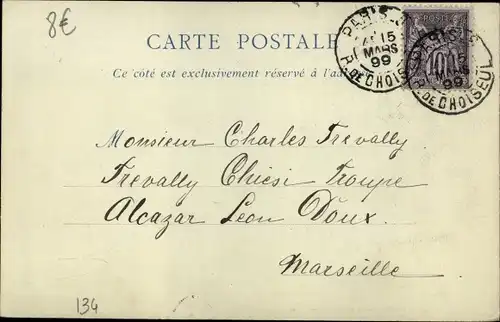 8€
CARTE POSTALE
Ce côté est exclusivement réservé à l'ad
PARIS
15
MARS
99
R. DE CHOISEUL
POSTES
10
PARIS
15
MARS
99
R. DE CHOISEUL
Monsieur Charles Trevally
Trevally Chiesi Troupe
Alcazar Leon Doux.
Marseille
134